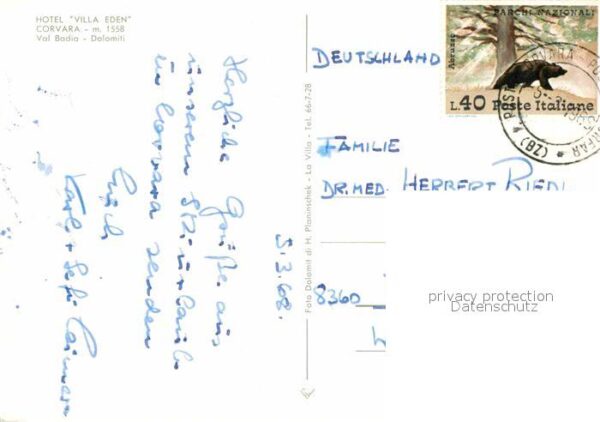 HOTEL "VILLA EDEN"
CORVARA - m. 1558
Val Badia - Dolomiti
5.3.68.
Herzliche Grüße aus
unserem Skiurlaub
in Corvara senden
Euch
Karl + Sefi
Foto Dolomit di H. Planinschek - La Villa - Tel. 66-7-28
PARCHI NAZIONALI
Abruzzo
L.40 Poste Italiane
DEUTSCHLAND
FAMILIE
DR. MED. HERBERT RIEDL
8360
privacy protection
Datenschutz